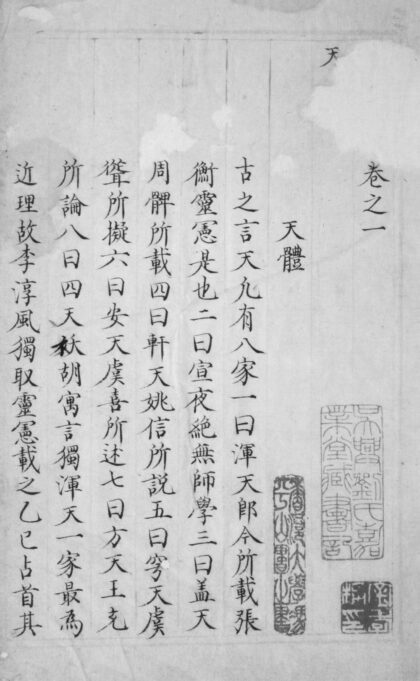 卷之一
吳興劉氏嘉
業堂藏書記
天
天體
古之言天凡有八家一曰渾天郎今所載張
衡靈憲是也二曰宣夜絶無師學三曰盖天
周髀所載四曰軒天姚信所説五曰穹天虞
聳所擬六曰安天虞喜所述七曰方天王充
所論八曰四天祆胡寓言獨渾天一家最為
近理故李淳風獨取靈憲載之乙巳占首其